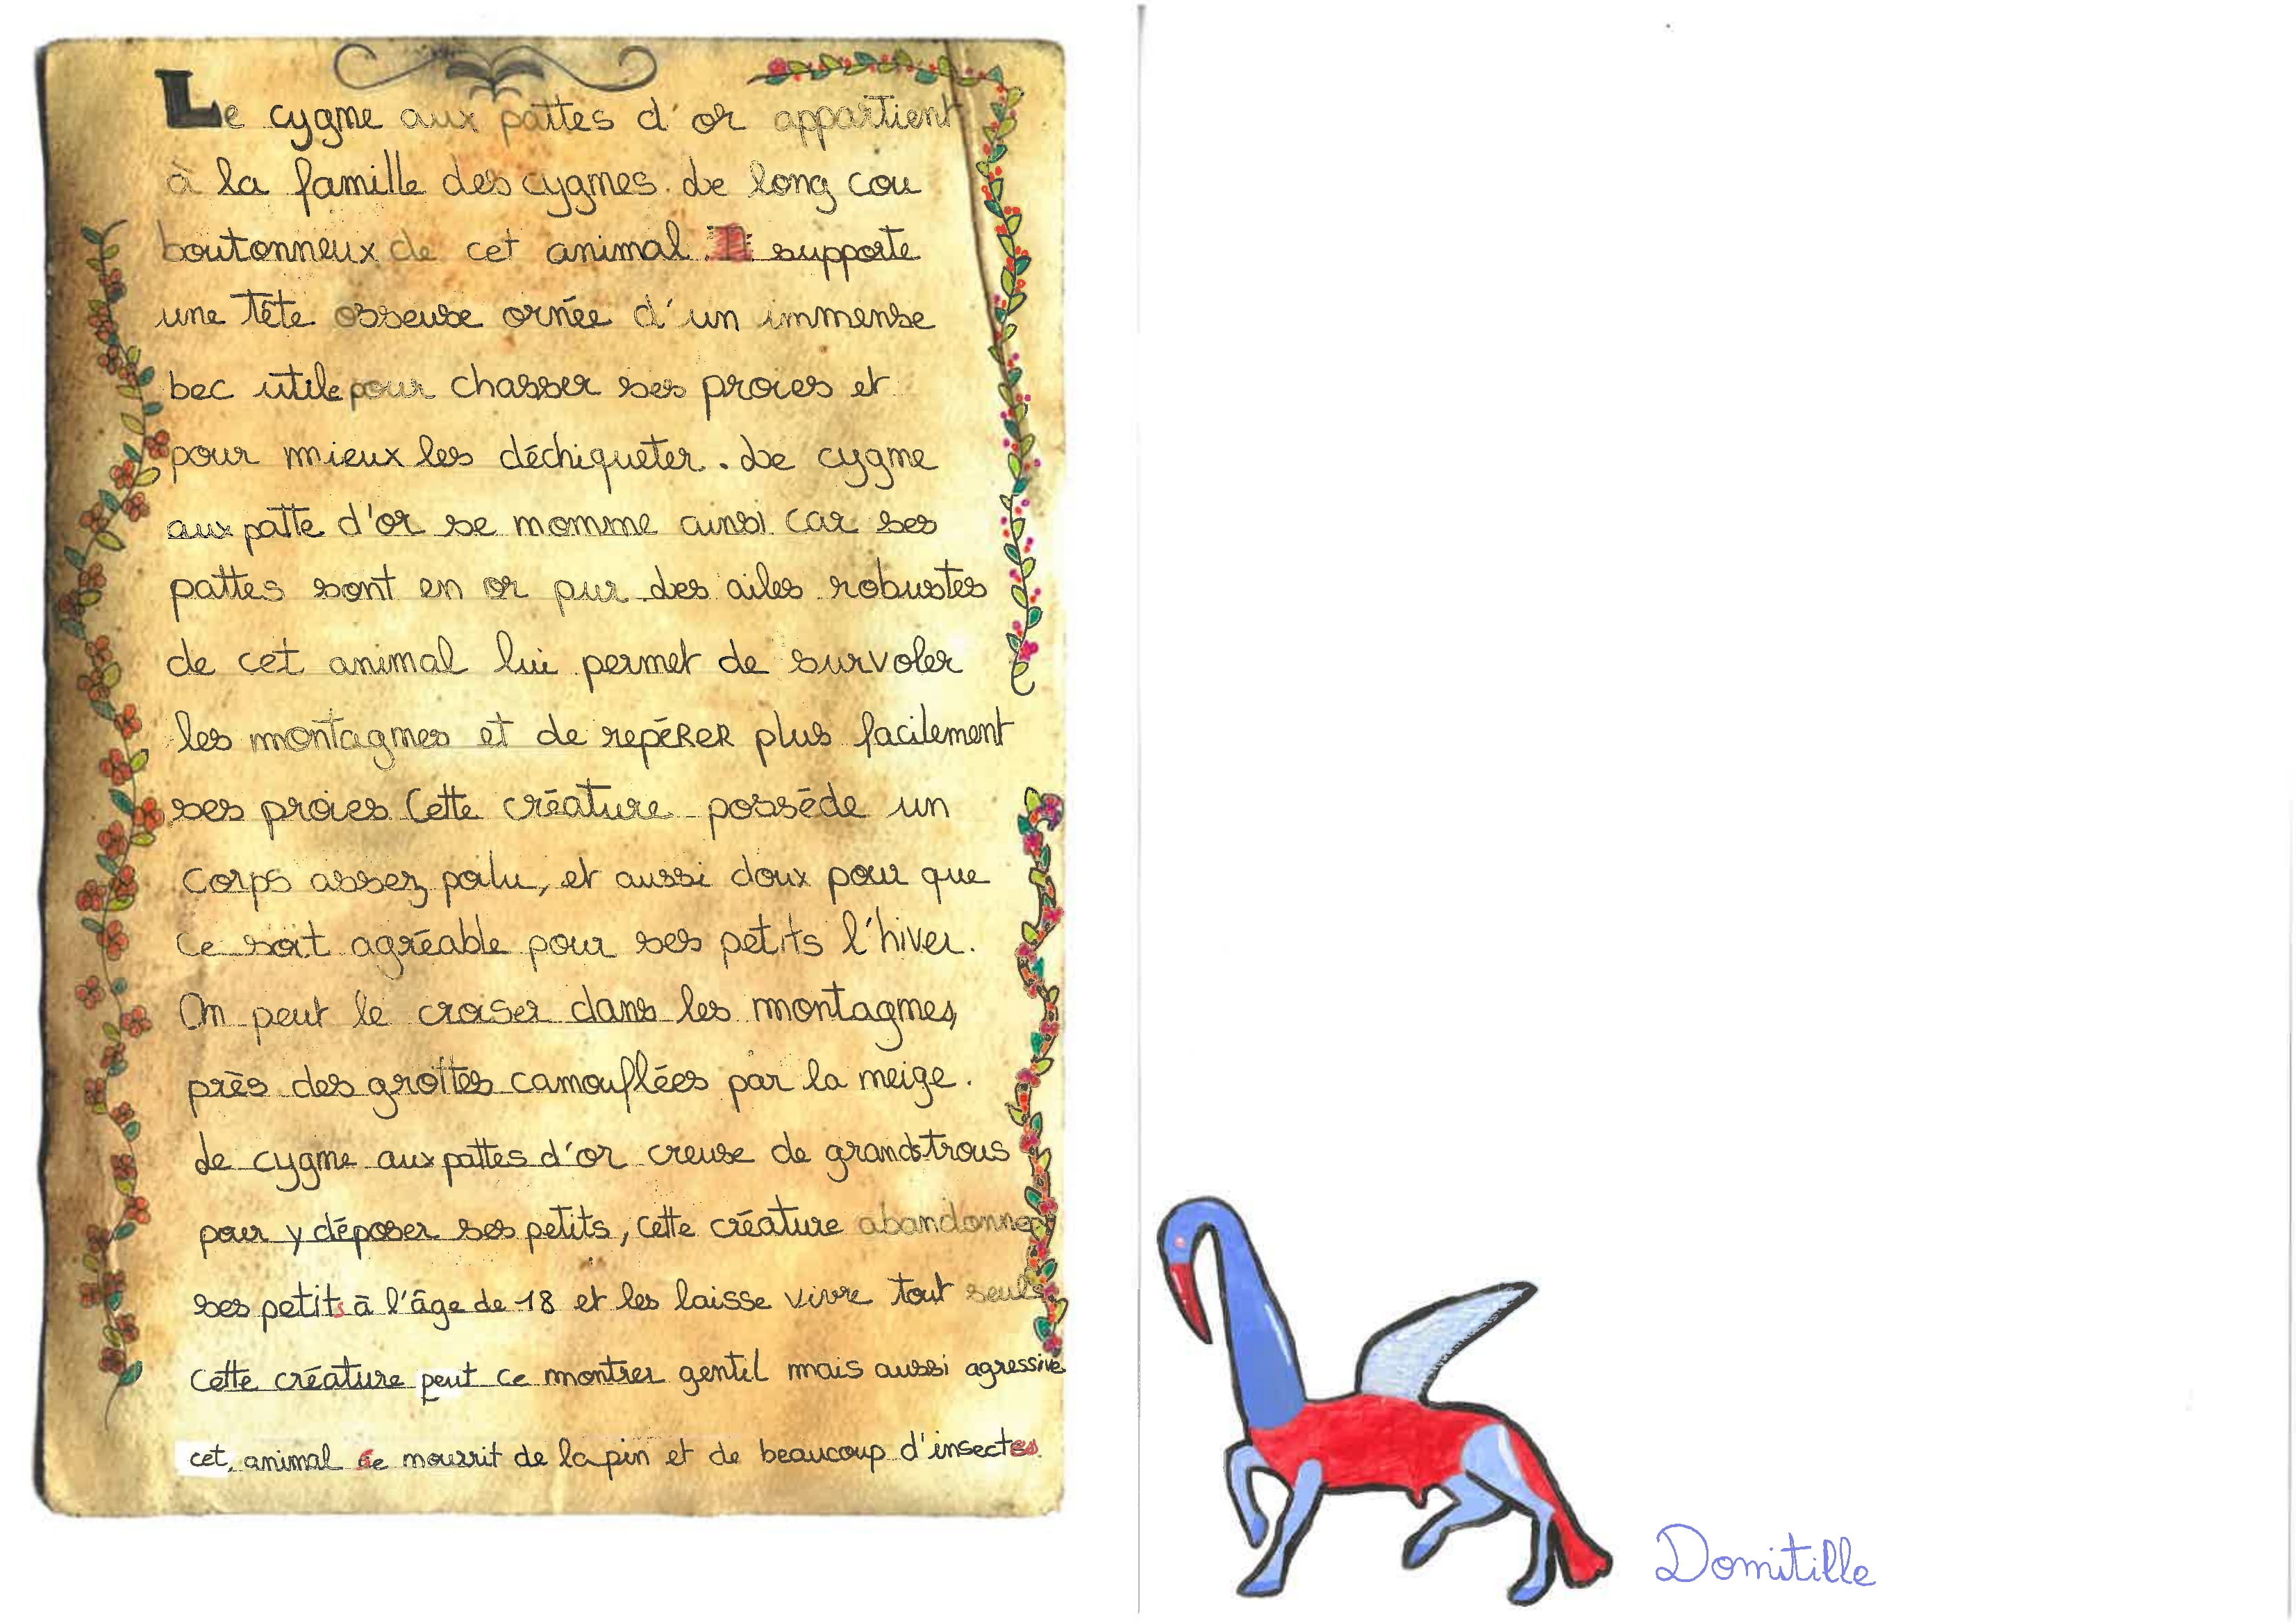 Le cygne aux pattes d'or appartient
à la famille des cygnes. Le long cou
boutonneux de cet animal. supporte
une tête osseuse ornée d'un immense
bec utile pour chasser ses proies et
pour mieux les déchiqueter. Le cygne
aux patte d'or se nomme ainsi car ses
pattes sont en or pur. Les ailes robustes
de cet animal lui permet de survoler
les montagnes et de repéRER plus facilement
ses proies Cette créature posséde un
corps assez poilu, et aussi doux pour que
ce soit agréable pour ses petits l'hiver.
On peut le croiser dans les montagnes,
près des grottes camouflées par la neige.
Le cygne aux pattes d'or creuse de grands trous
pour y déposer ses petits, cette créature abandonne
ses petits à l'âge de 18 et les laisse vivre tout seuls
Cette créature peut ce montrer gentil mais aussi agressive
cet, animal se nourrit de lapin et de beaucoup d'insectes.
Domitille